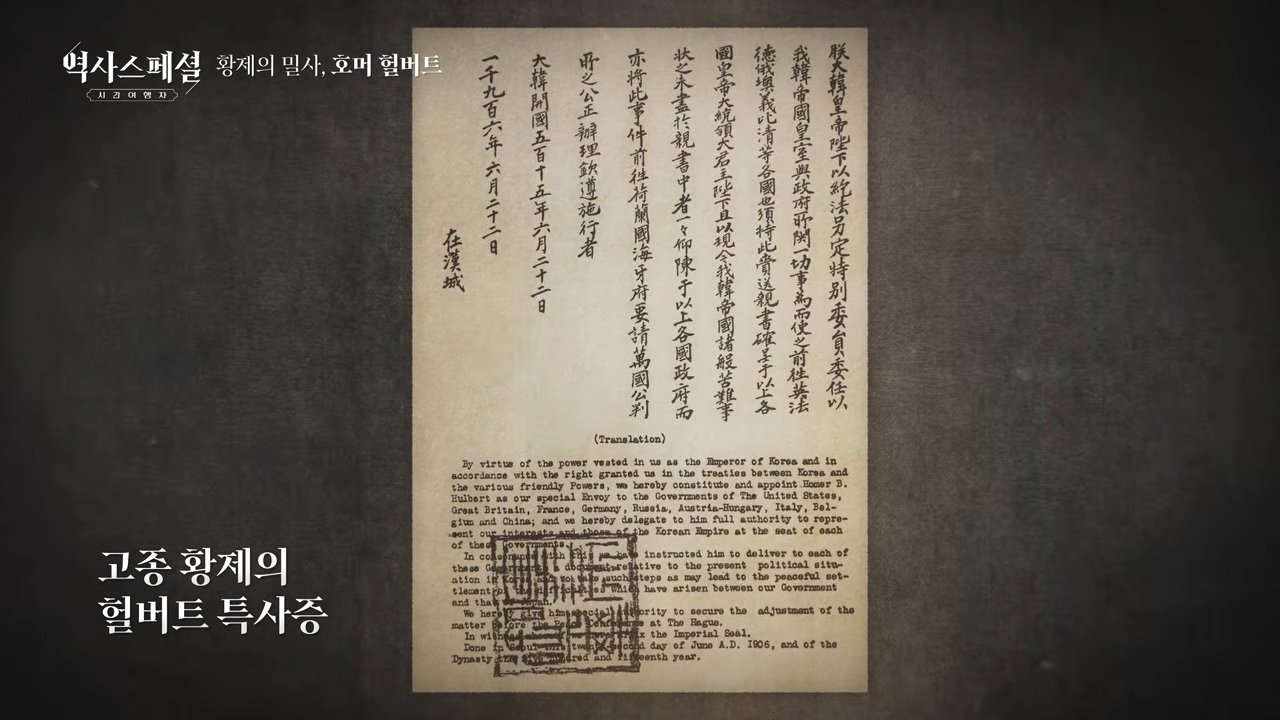 역사스페셜
시간여행자
황제의 밀사, 호머 헐버트
朕大韓皇帝陛下以紇法另定特別委員委任以
我韓帝國皇室與政府所關一切事為而使之前往英法
德俄墺義比清等各國也須持此賫送親書確呈于以上各
國皇帝大統領大君主陛下且以現今我韓帝國諸般苦難事
狀之未盡於親書中者一々仰陳于以上各國政府而
亦將此事件前往荷蘭國海牙府要請萬國公判
所之公正辦理欽遵施行者
大韓開國五百十五年六月二十二日
一千九百六年六月二十二日
在漢城
(Translation)
By virtue of the power vested in us as the Emperor of Korea and in
accordance with the right granted us in the treaties between Korea and
the various friendly Powers, we hereby constitute and appoint Homer B.
Hulbert as our special Envoy to the Governments of The United States,
Great Britain, France, Germany, Russia, Austria-Hungary, Italy, Bel-
gium and China; and we hereby delegate to him full authority to repre-
sent our interests and those of the Korean Empire at the seat of each
of these Governments.
In consonance with this we have instructed him to deliver to each of
these a document relative to the present political situ-
ation in Korea and to take such steps as may lead to the peaceful set-
tlement of which have arisen between our Government
and that of Japan.
We hereby give him special authority to secure the adjustment of the
matter before the Peace Conference at The Hague.
In witness whereof we here affix the Imperial Seal.
Done in Seoul this twenty second day of June A.D. 1906, and of the
Dynasty the five hundred and fifteenth year.
고종 황제의
헐버트 특사증